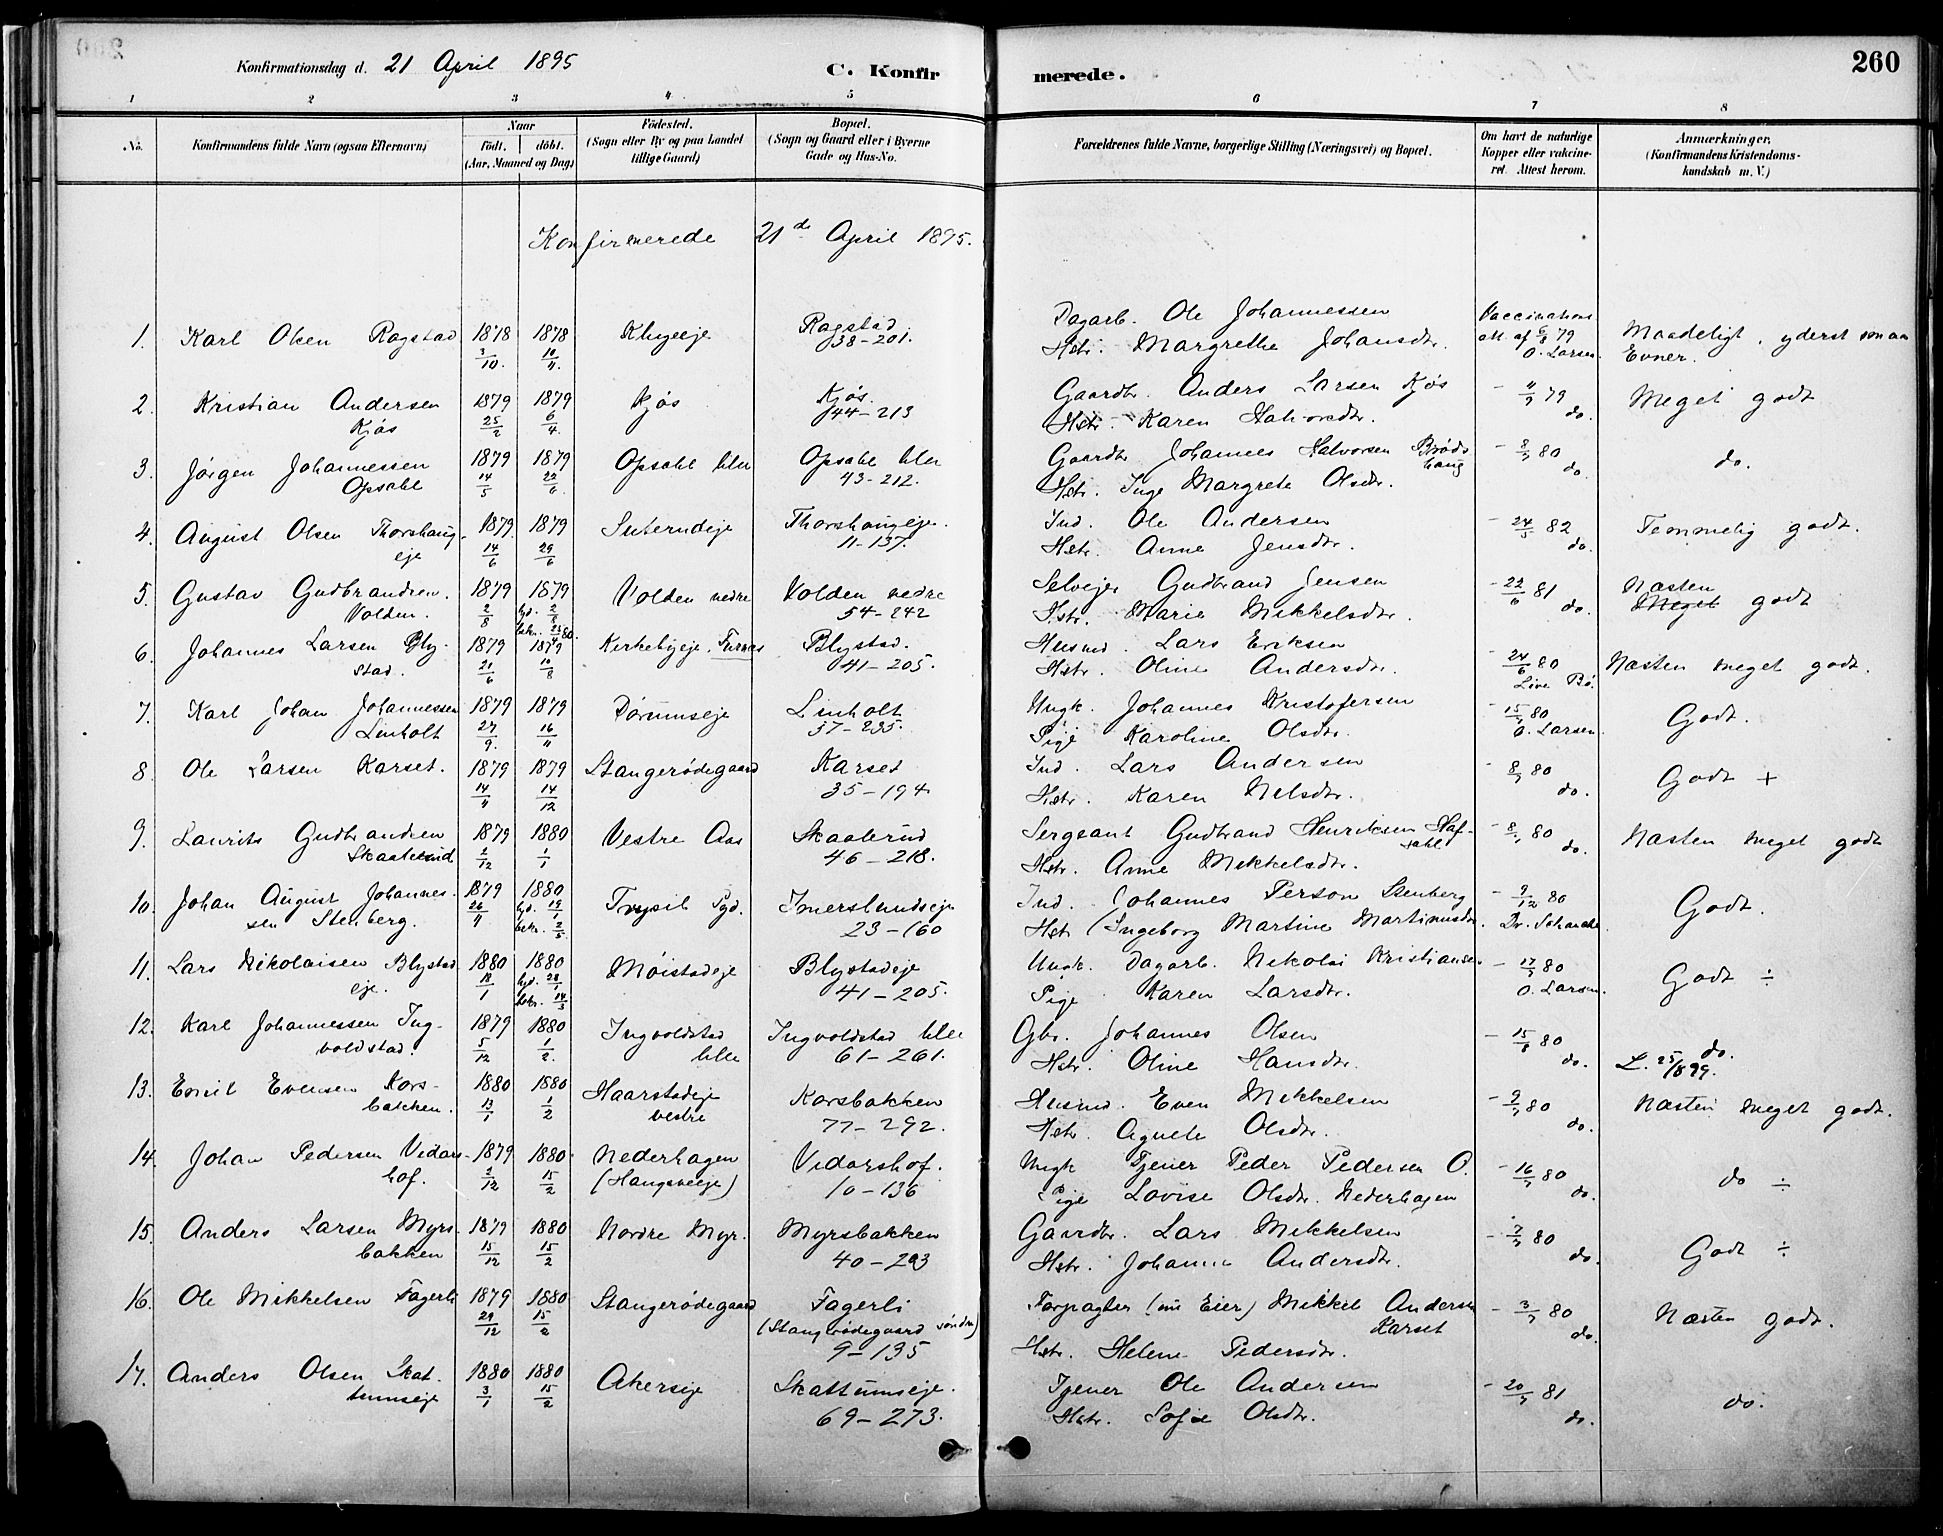 Konfirmationsdag d. 21 April 1895
C. Konfirmerede.
260
1 2 3 4 5 6 7 8
No.
Konfirmandens fulde Navn (ogsaa Efternavn)
Naar
født. døbt.
(Aar, Maaned og Dag)
Fødested.
(Sogn eller By og paa Landet
tillige Gaard)
Bopæl.
(Sogn og Gaard eller i Byerne
Gade og Hus-No.
Forældrenes fulde Navne, borgerlige Stilling (Næringsvei) og Bopæl.
Om havt de naturlige
Kopper eller vakcine-
ret. Attest herom.
Anmærkninger.
(Konfirmandens Kristendoms-
kundskab m. V.)
Konfirmerede 21de April 1895.
1. Karl Olsen Ragstad 1878 3/10 1878 10/11 Ragstad 38-201.
Dagarb. Ole Johannessen
Hstr. Margrethe Johansdtr.
Vaccinations att. af 79 O. Larsen.
Maadeligt, yderst smaa Evner.
2. Kristian Andersen Kjøs 1879 25/2 1879 6/4 Kjøs Kjøs. 44-213
Gaardbr. Anders Larsen Kjøs
Hstr. Karen Halvorsdtr.
79 do.
Meget godt
3. Jørgen Johannessen Opsahl 1879 14/5 1879 22/6 Opsahl lille Opsahl lille 43-212.
Gaardbr. Johannes Halvorsen Brødshaug
Hstr. Inge Margrete Olsdtr.
80 do.
do.
4. August Olsen Thorshaugeje 1879 14/6 1879 29/6 Thorshaugeje. 11-137.
Ind. Ole Andersen
Hstr. Anne Jensdtr.
24/5 82 do.
Temmelig godt.
5. Gustav Gudbrandsen Volden. 1879 2/8 1879 Volden nedre Volden nedre 54-242
Selvejer Gudbrand Jensen
Hstr. Marie Mikkelsdtr.
22/6 81 do.
Næsten Meget godt
6. Johannes Larsen Blystad. 1879 21/6 1879 10/8 Kirkebyeje. Furnes Blystad. 41-205.
Husmd. Lars Eriksen
Hstr. Oline Andersdtr.
24/6 80
Næsten meget godt.
7. Karl Johan Johannessen Linholt 1879 27/9. 1879 16/11 Dørumseje Linholt 37-235.
Ungk. Johannes Kristofersen
Pige Karoline Olsdtr.
80 O. Larsen.
Godt.
8. Ole Larsen Karset. 1879 14/11 1879 14/12 Stangerødegaard Karset 35-194
Ind. Lars Andersen
Hstr. Karen Nelsdtr.
80 do.
Godt +
9. Laurits Gudbrandsen Skaalerud 1879 2/12 1880 Vestre Aas Skaalerud 46-218.
Sergeant Gudbrand Henriksen
Hstr. Anne Mikkelsdtr.
80 do.
Næsten meget godt
10. Johan August Johannessen Stenberg. 1879 26/11 1880 Trysil Imerslundseje 23-160
Ind. Johannes Person Stenberg
Hstr. Ingeborg Martine Martinusdtr.
9/12 80 Dr. Schanche
Godt.
11. Lars Nikolaisen Blystadeje. 1880 1880 Møistadeje Blystadeje 41-205.
Ungk. Dagarb. Nikolai Kristiansen
Pige Karen Larsdtr.
80 O. Larsen.
Godt ÷
12. Karl Johannessen Ingvoldstad. 1879 5/12 1880 1/2. Ingvoldstad lille Ingvoldstad lille 61-261.
Gbr. Johannes Olsen
Hstr. Oline Hansdtr.
80 do.
do. L. 25/8 99.
13. Emil Evensen Korsbakken. 1880 13/1 1880 1/2 Haarstadeje vestre Korsbakken 77-292.
Husmd. Even Mikkelsen
Hstr. Agnete Olsdtr.
80 do.
Næsten meget godt.
14. Johan Pedersen Vidarshof. 1879 2/12 1880 15/2 Nederhagen Vidarshof. 10-136
Ungk Tjener Peder Pedersen O.
Pige Lovise Olsdtr. Nederhagen
80 do.
do ÷
15. Anders Larsen Myrsbakken 1879 15/12 1880 15/2 Nordre Myr. Myrsbakken 40-203
Gaardbr. Lars Mikkelsen
Hstr. Johanne Andersdtr.
80 do.
Godt ÷
16. Ole Mikkelsen Fagerli 1879 29/12 1880 15/2 Stangerødegaard Fagerli (Stangerødegaard søndre) 9-135
Forpagter (nu Eier) Mikkel Andersen Karset
Hstr. Helene Pedersdtr.
80 do.
Næsten godt.
17. Anders Olsen Skattumseje 1880 3/1 1880 15/2 Akerseje Skattumseje. 69-273.
Tjener Ole Andersen
Hstr. Sofie Olsdtr.
81 do.
do.